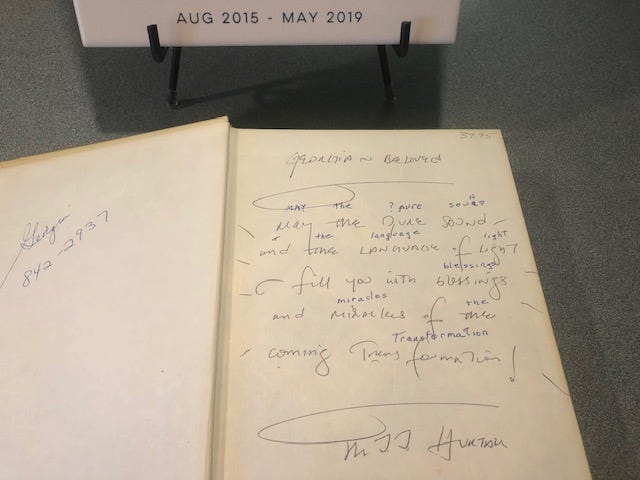 AUG 2015 - MAY 2019
Georgia
842-2937
37.75
GEORGIA ~ BELOVED
MAY the ? PURE SOUND
MAY THE PURE SOUND
the language light
and THE LANGUAGE of LIGHT
blessings
fill you with blessings
miracles the
and MIRACLES of THE
Transformation
coming Transformation!
HURTAK